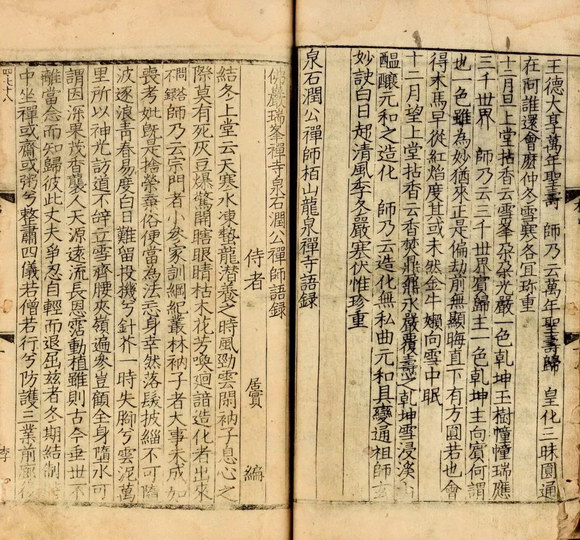 王德大其萬年聖壽 師乃云萬年聖壽歸 皇化三昧圓通
在阿誰還會麽仲冬雪寒各宜珎重
十二月旦上堂拈香云雲峯朶朶光嚴一色乾坤玉樹幢幢瑞應
三千世界 師乃云三千世界賓歸主一色乾坤主向賓何謂
也一色雖為妙猶來正是偏劫前無顯晦直下有方圓若也會
得木馬早從紅焰度其或未然金牛嬾向雪中眠
十二月望上堂拈香云香焚鼎鼎永嚴覆燾之乾坤雪浸溪
醖釀元和之造化 師乃云造化無私曲元和具變通祖師
妙訣白日起清風季冬嚴寒伏惟珍重
泉石潤公禪師栢山龍泉禪寺語録
佛嚴瑞峯禪寺泉石潤公禪師語録
侍者 居實 編
結冬上堂云天寒水凍蟄龍潜養之時風勁雲閑衲子息心之
際莫有死灰豆爆驚開瞎眼睛枯木花芳喚廻諳造化者出來
問答師乃云宗門者小參家訓綱紀叢林衲子者大事未成如
喪考妣旣是捨榮棄俗便當為法忘身幸然落髮披緇不可隨
波逐浪青春易度白日難留投機兮針芥一時失脚兮雲泥萬
里所以神光訪道不辤立雪齊腰夾嶺過參豈顧全身隨水可
謂因深果茂香襲人天源遠流長恩霑動植雖則古今垂世不
離當念而知歸彼此丈夫爭忍自輕而退屈兹者冬期結制
中坐禪或齋或粥兮整肅四儀若僧若行兮防護三業前廊後